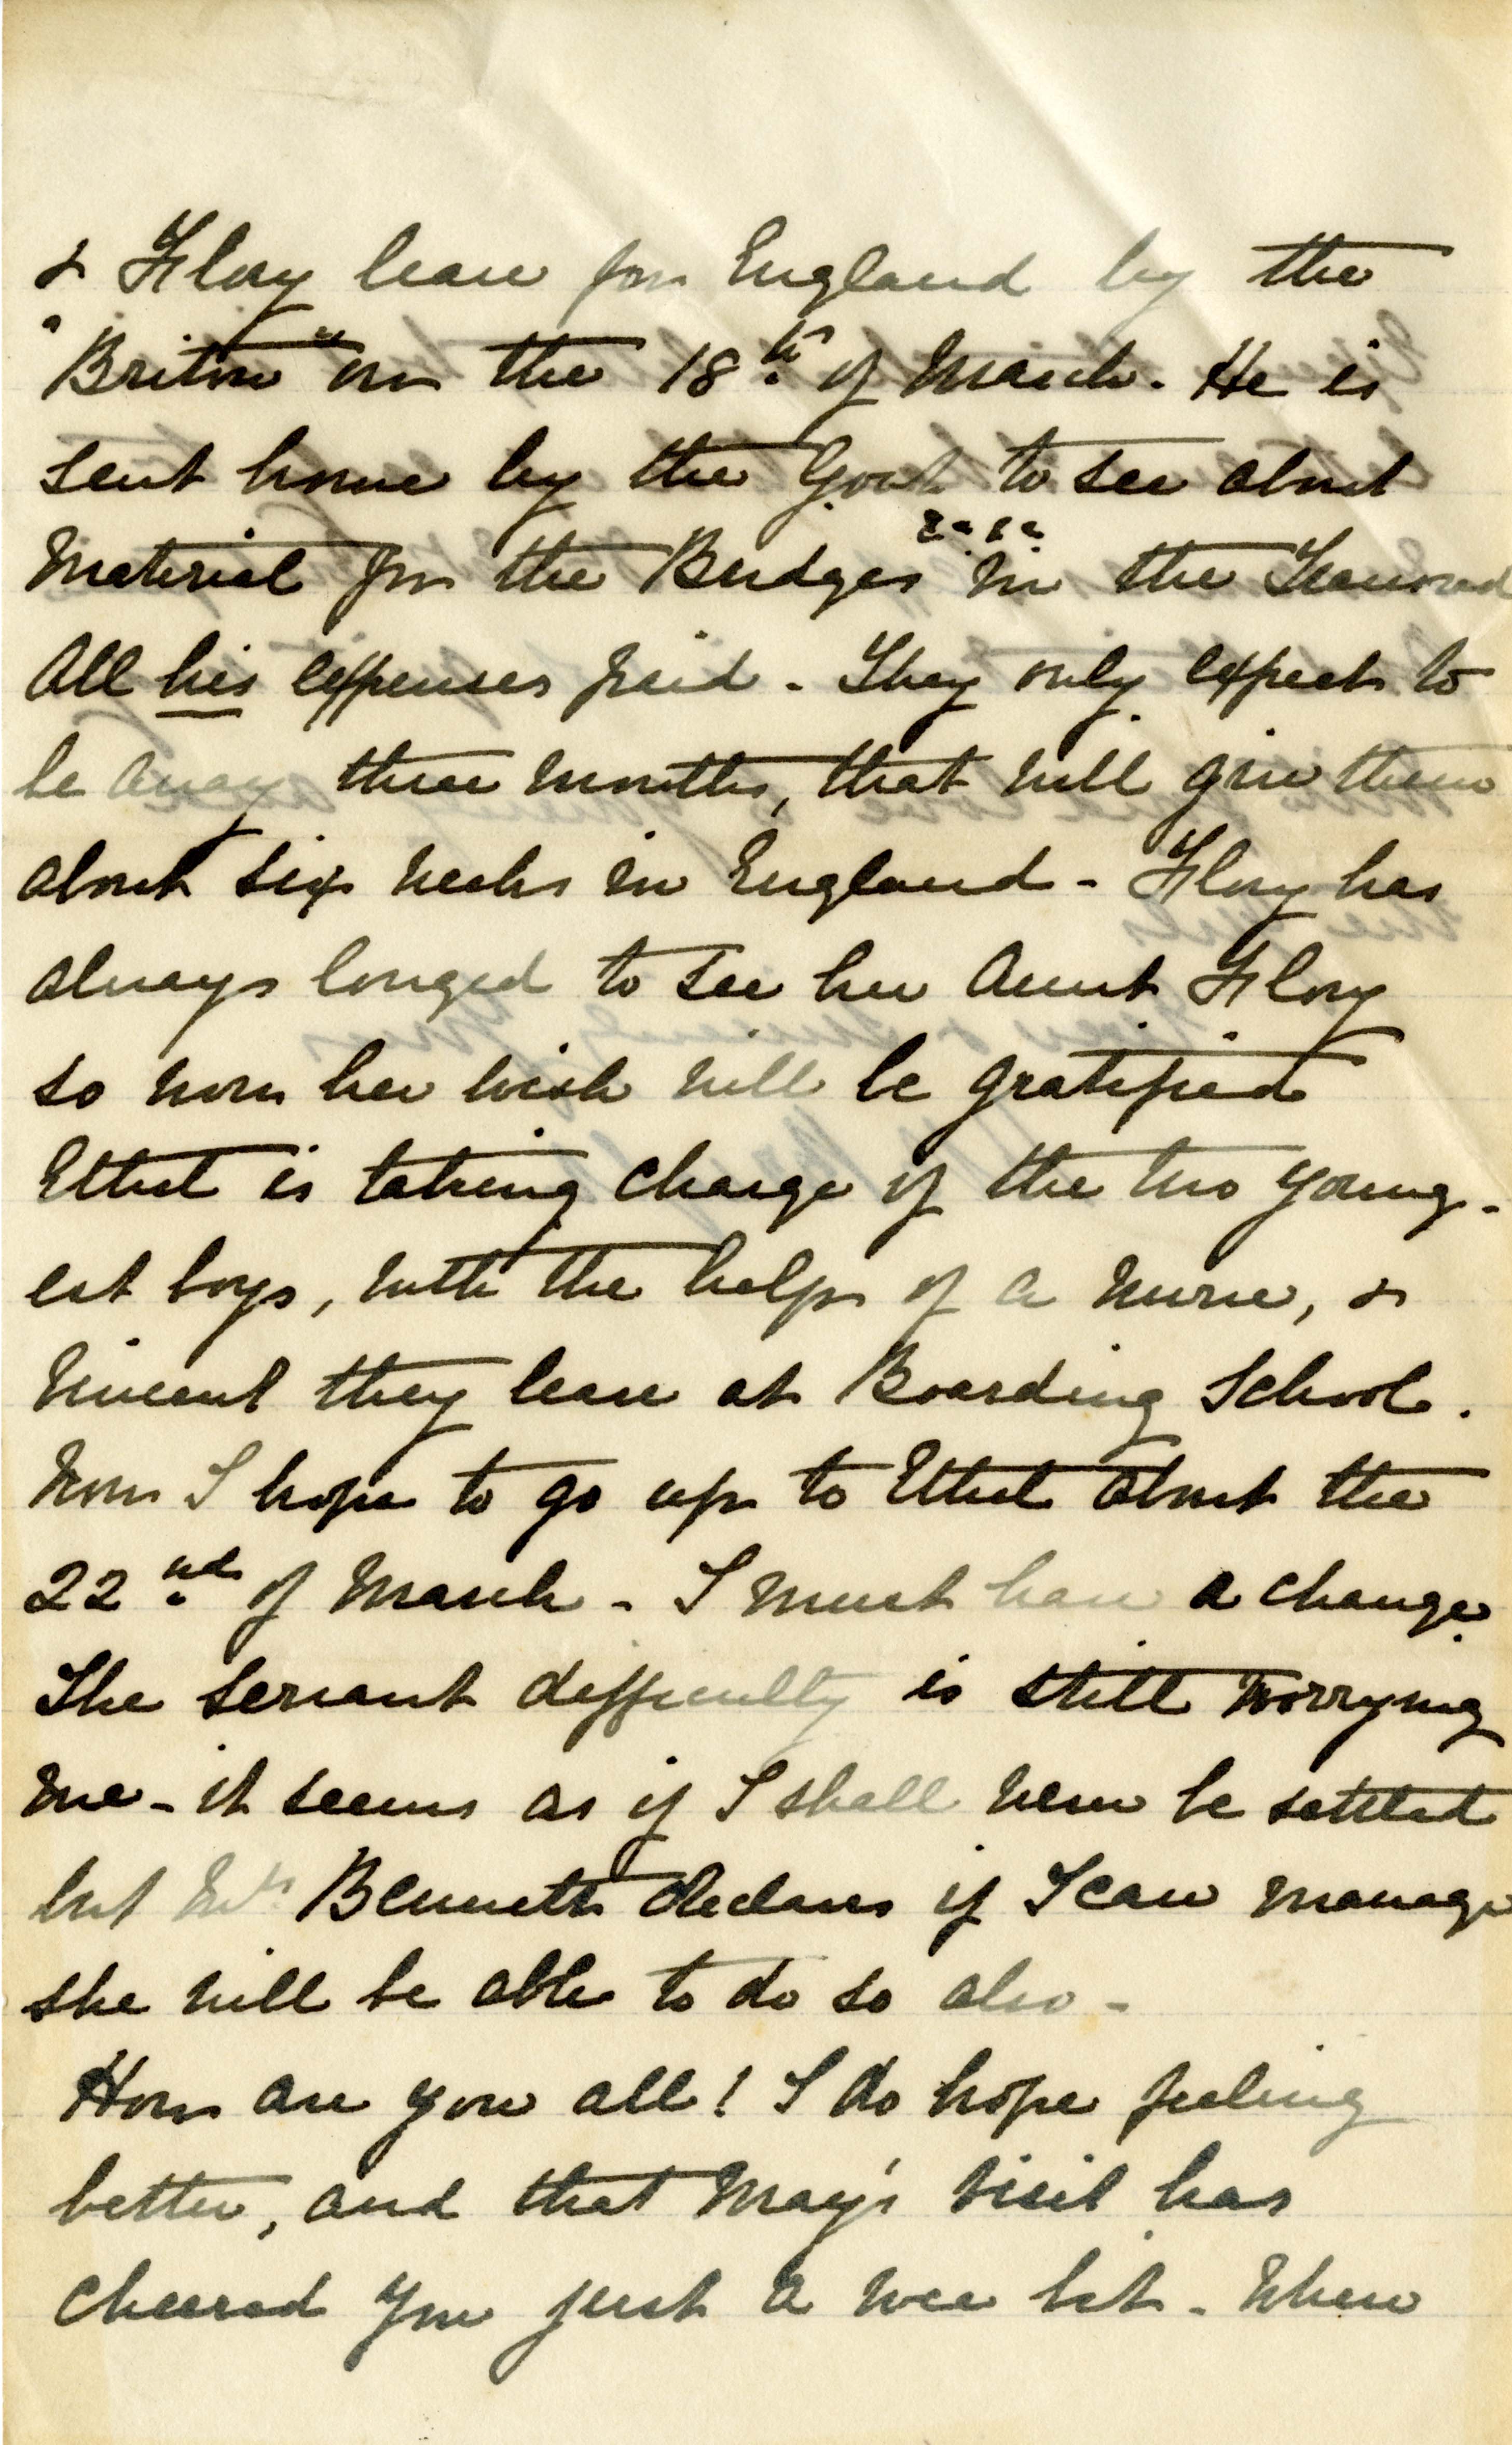 & Flory leave for England by the
"Briton" on the 18th of March. He is
sent home by the Govt to see about
Material for the Bridges &c &c in the Transvaal
All his expenses paid - They only expect to
be away three months, that will give them
about six weeks in England - Flory has
always longed to see her Aunt Flory
so now her wish will be gratified
Ethel is taking charge of the two young-
est boys, with the help of a nurse, &
Vincent they leave at Boarding School.
Now I hope to go up to Ethel about the
22nd of March - I must have a change.
The servant difficulty is still worrying
me - it seems as if I shall never be settled
but Mrs Bennett declares if I can manage
she will be able to do so also -
How are you all! I do hope feeling
better, and that May's visit has
cheered you just a wee bit - When